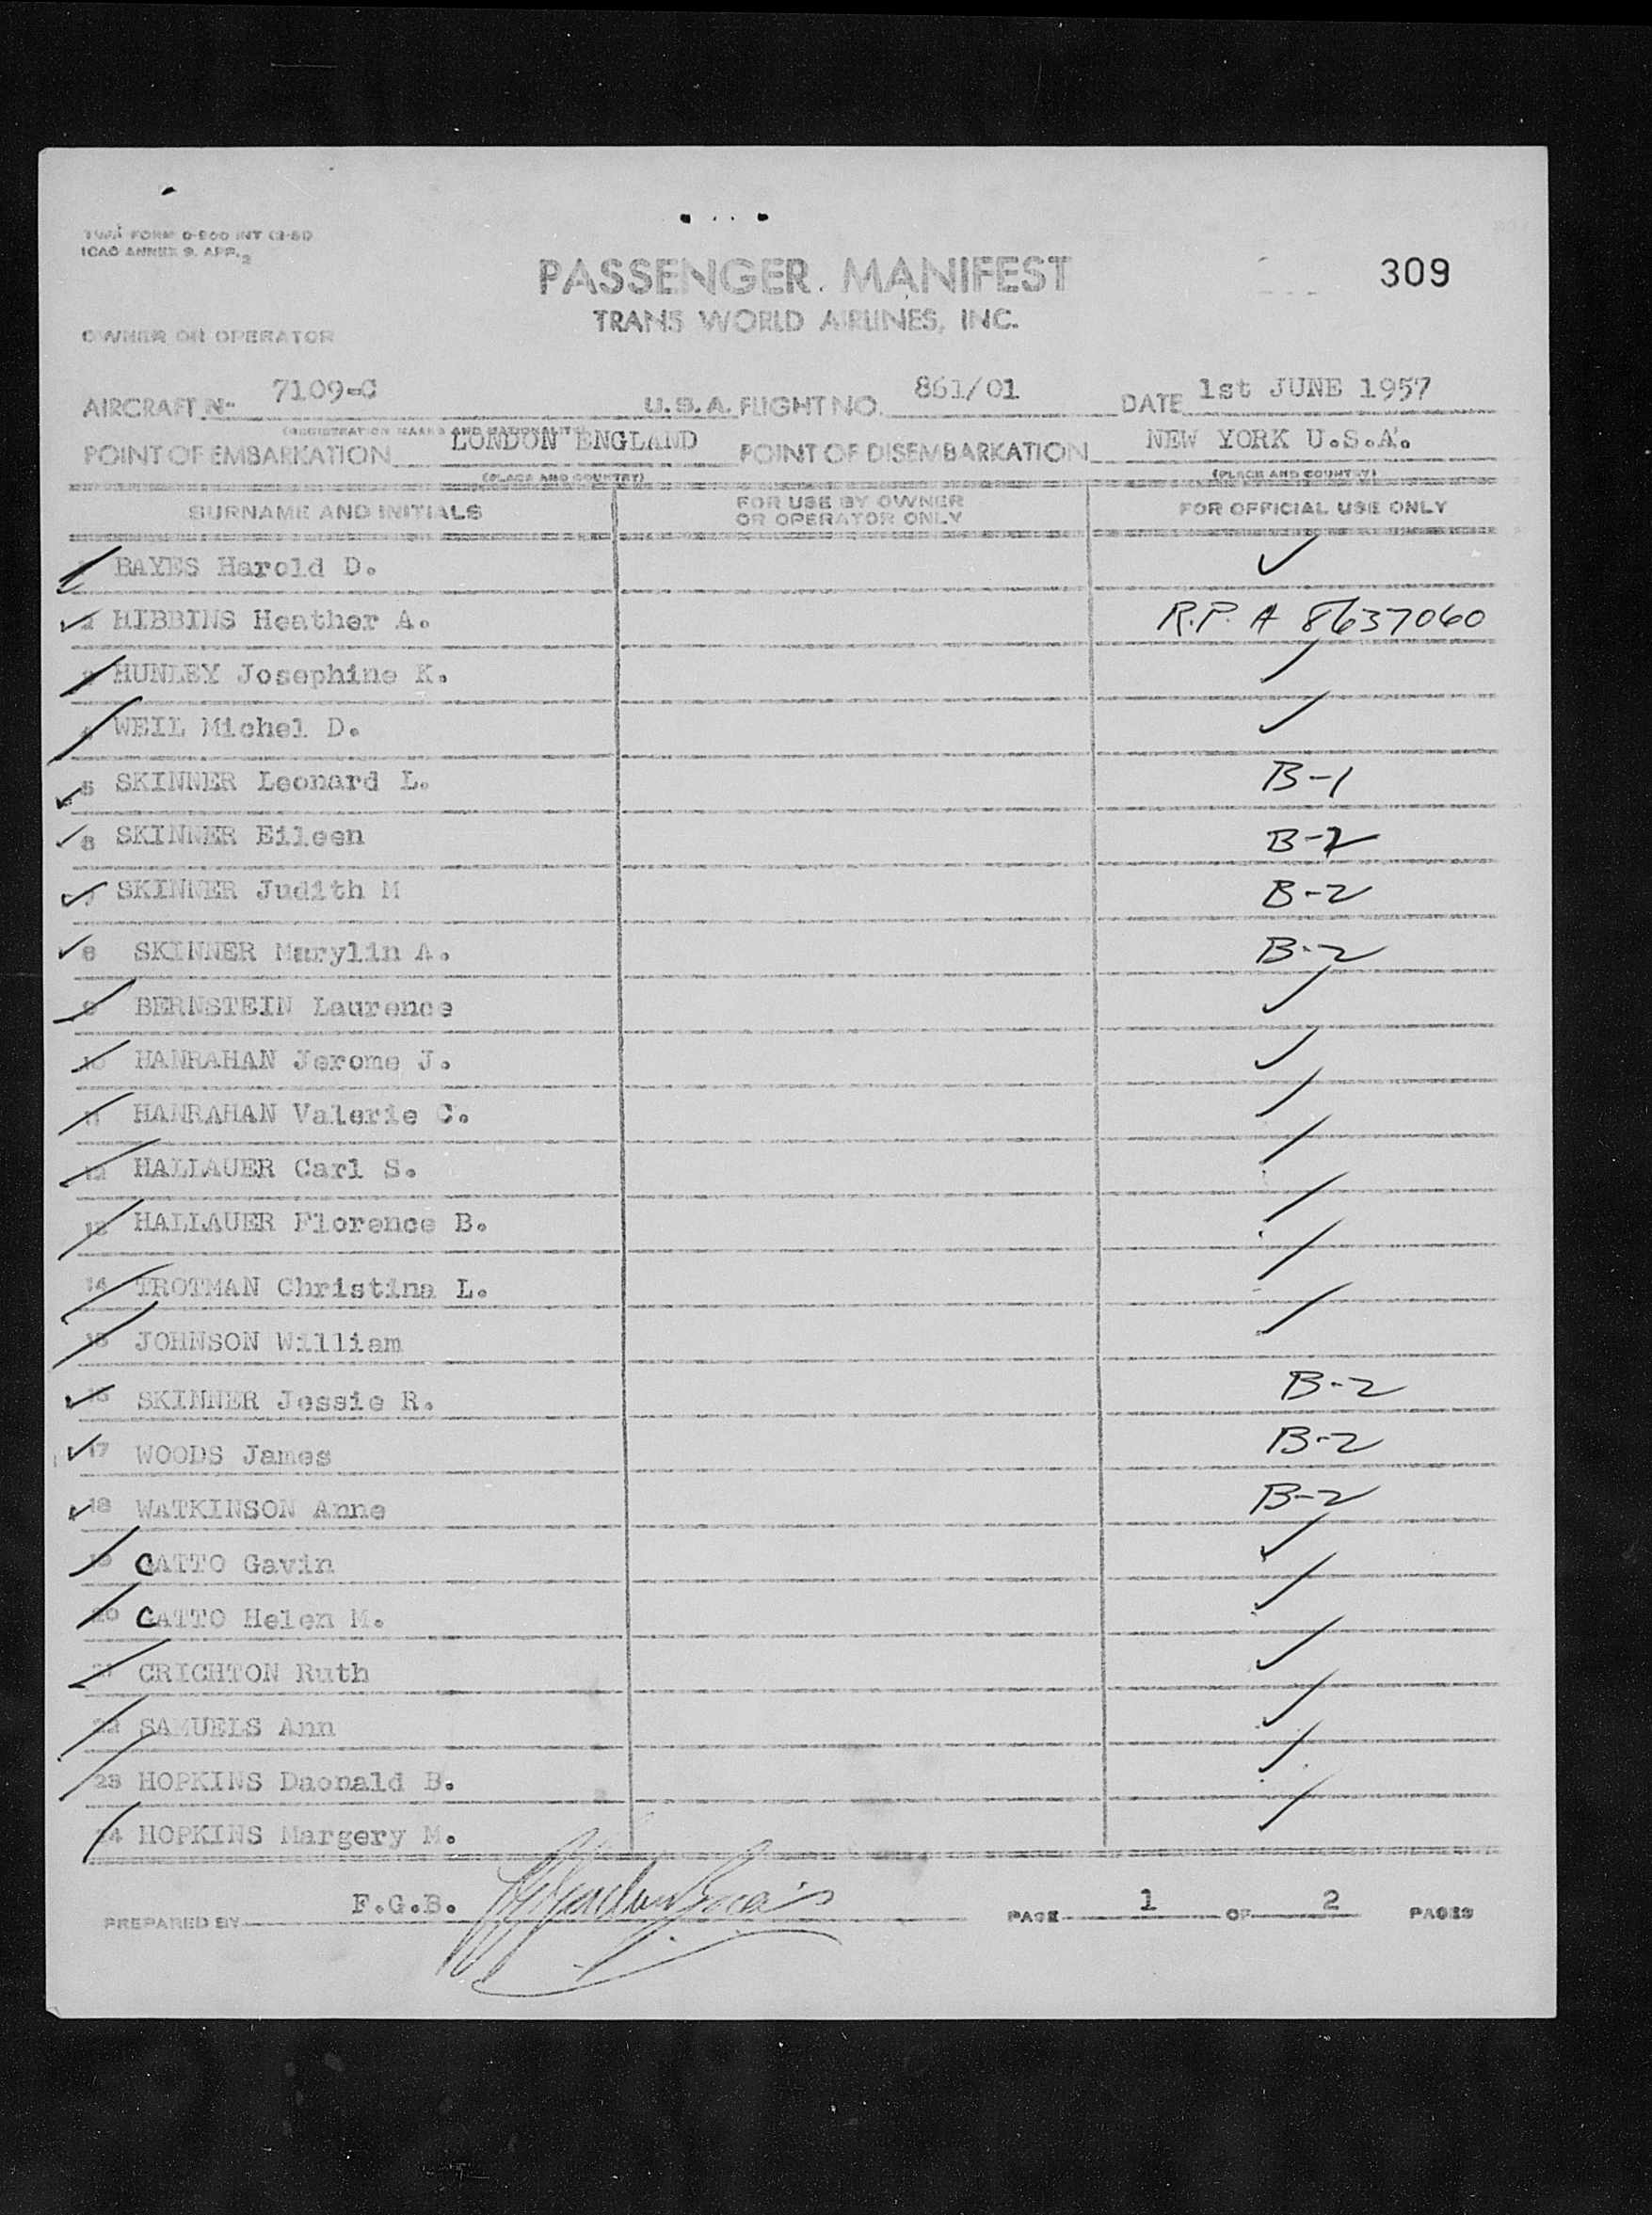 TWA FORM O-800 INT (3-51)
ICAO ANNEX 9. APP. 2
PASSENGER MANIFEST
309
TRANS WORLD AIRLINES, INC.
OWNER OR OPERATOR
AIRCRAFT No 7109-C U.S.A. FLIGHT NO. 861/01 DATE 1st JUNE 1957
(REGISTRATION MARKS AND NATIONALITY)
POINT OF EMBARKATION LONDON ENGLAND POINT OF DISEMBARKATION NEW YORK U.S.A.
(PLACE AND COUNTRY) (PLACE AND COUNTRY)
SURNAME AND INITIALS FOR USE BY OWNER OR OPERATOR ONLY FOR OFFICIAL USE ONLY
BAYES Harold D. ✓
2 HIBBINS Heather A. R.P. A 8637060
3 HUNLEY Josephine K.
4 WEIL Michel D. ✓
5 SKINNER Leonard L. B-1
6 SKINNER Eileen B-2
7 SKINNER Judith M B-2
8 SKINNER Marylin A. B-2
9 BERNSTEIN Laurence ✓
10 HANRAHAN Jerome J. ✓
11 HANRAHAN Valerie C.
12 HALLAUER Carl S.
13 HALLAUER Florence B.
14 TROTMAN Christina L.
15 JOHNSON William
16 SKINNER Jessie R. B-2
17 WOODS James B-2
18 WATKINSON Anne B-2
19 CATTO Gavin ✓
20 CATTO Helen M.
21 CRICHTON Ruth ✓
22 SAMUELS Ann ✓
23 HOPKINS Daonald B.
24 HOPKINS Margery M.
PREPARED BY F.G.B. PAGE 1 OF 2 PAGES